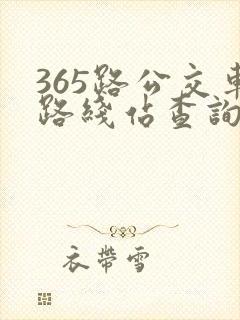 365路公交車
路綫佔查詢
衣帶雪